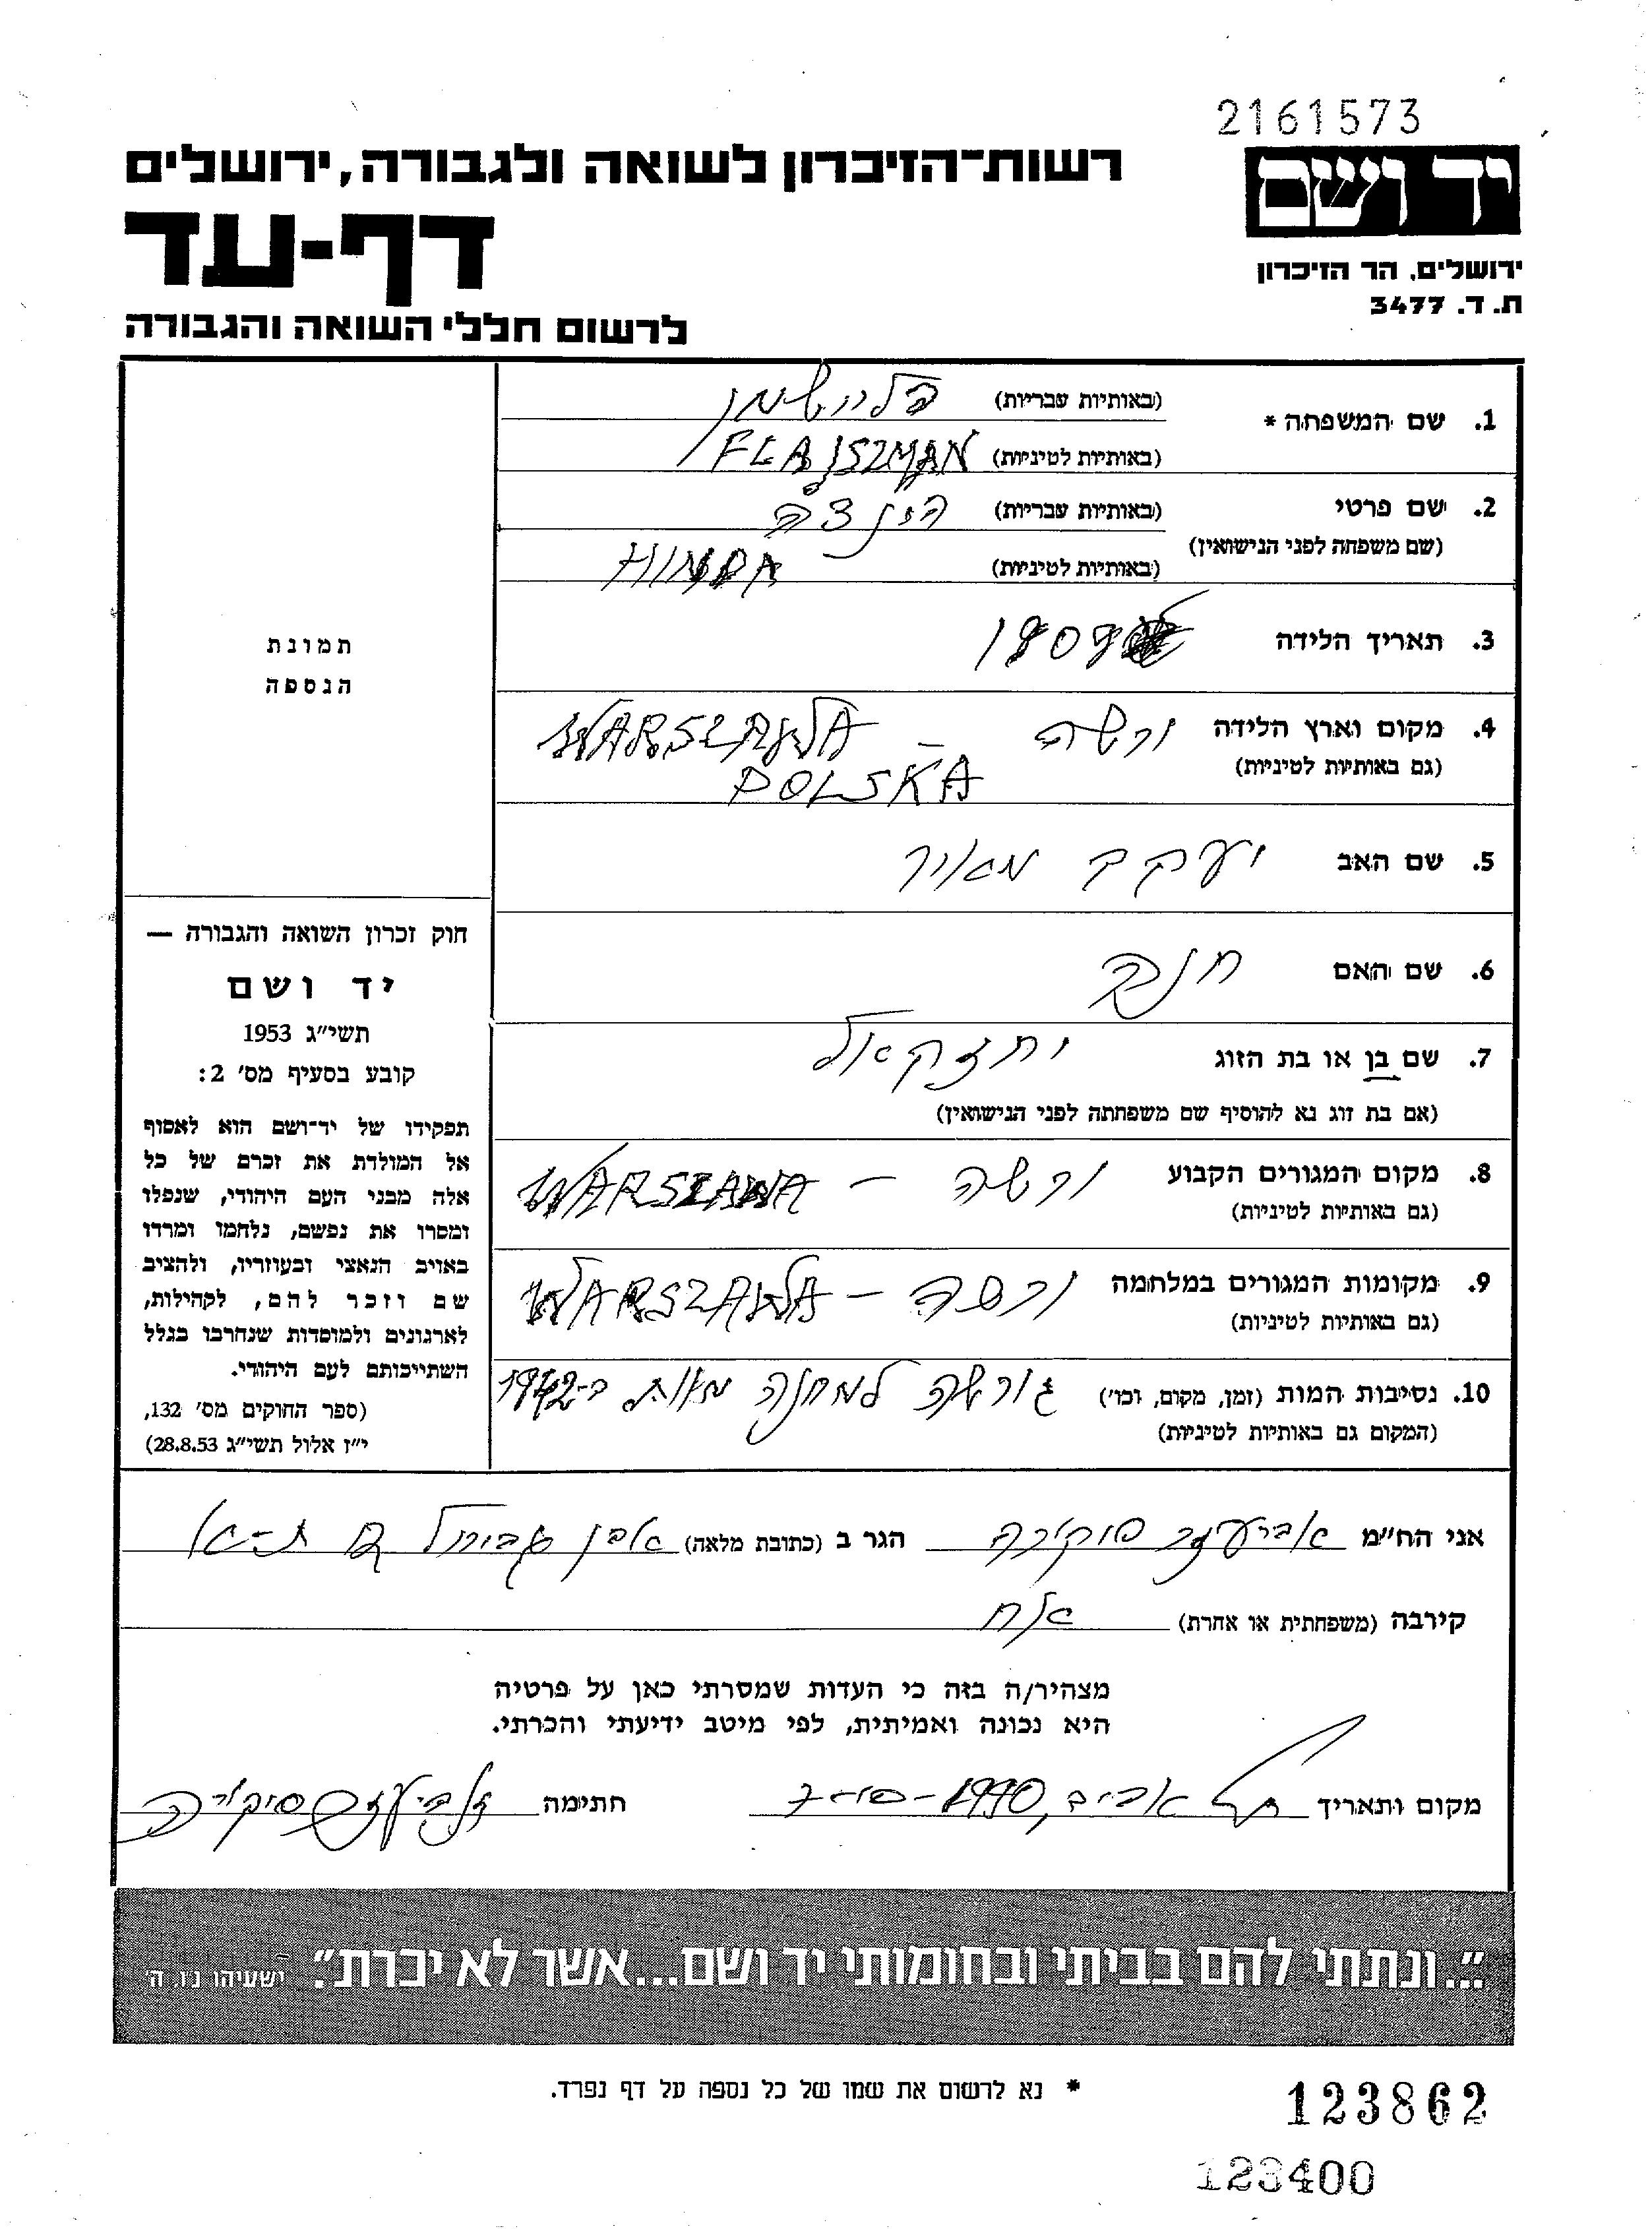 2161573
יד ושם
רשות־הזיכרון לשואה ולגבורה, ירושלים
דף-עד
ירושלים, הר הזיכרון
ת.ד. 3477
לרשום חללי השואה והגבורה
1. שם המשפחה * (באותיות עבריות) פליישמן
(באותיות לטיניות) FLAJSZMAN
2. שם פרטי (באותיות עבריות) הינדה
(שם משפחה לפני הנישואין)
(באותיות לטיניות) HINDA
3. תאריך הלידה 1909
4. מקום וארץ הלידה ורשה – WARSZAWA
(גם באותיות לטיניות) POLSKA
5. שם האב יעקב מאיר
6. שם האם חנה
7. שם בן או בת הזוג יחזקאל
(אם בת זוג נא להוסיף שם משפחתה לפני הנישואין)
8. מקום המגורים הקבוע ורשה – WARSZAWA
(גם באותיות לטיניות)
9. מקומות המגורים במלחמה ורשה – WARSZAWA
(גם באותיות לטיניות)
10. נסיבות המות (זמן, מקום, וכו') גורשה למחנה מות ב-1942
(המקום גם באותיות לטיניות)
תמונת
הנספה
חוק זכרון השואה והגבורה —
יד ושם
תשי״ג 1953
קובע בסעיף מס׳ 2:
תפקידו של יד־ושם הוא לאסוף
אל המולדת את זכרם של כל
אלה מבני העם היהודי, שנפלו
ומסרו את נפשם, נלחמו ומרדו
באויב הנאצי ובעוזריו, ולהציב
שם וזכר להם, לקהילות,
לארגונים ולמוסדות שנחרבו בגלל
השתייכותם לעם היהודי.
(ספר החוקים מס׳ 132,
י״ז אלול תשי״ג 28.8.53)
אני הח״מ אביעזר סוקירה הגר ב (כתובת מלאה) אבן גבירול ת-א
קירבה (משפחתית או אחרת) אח
מצהיר/ה בזה כי העדות שמסרתי כאן על פרטיה
היא נכונה ואמיתית, לפי מיטב ידיעתי והכרתי.
מקום ותאריך תל אביב, 1990 חתימה
״...ונתתי להם בביתי ובחומותי יד ושם...אשר לא יכרת״. ישעיהו נ״ו, ה׳
* נא לרשום את שמו של כל נספה על דף נפרד.
123862
123400